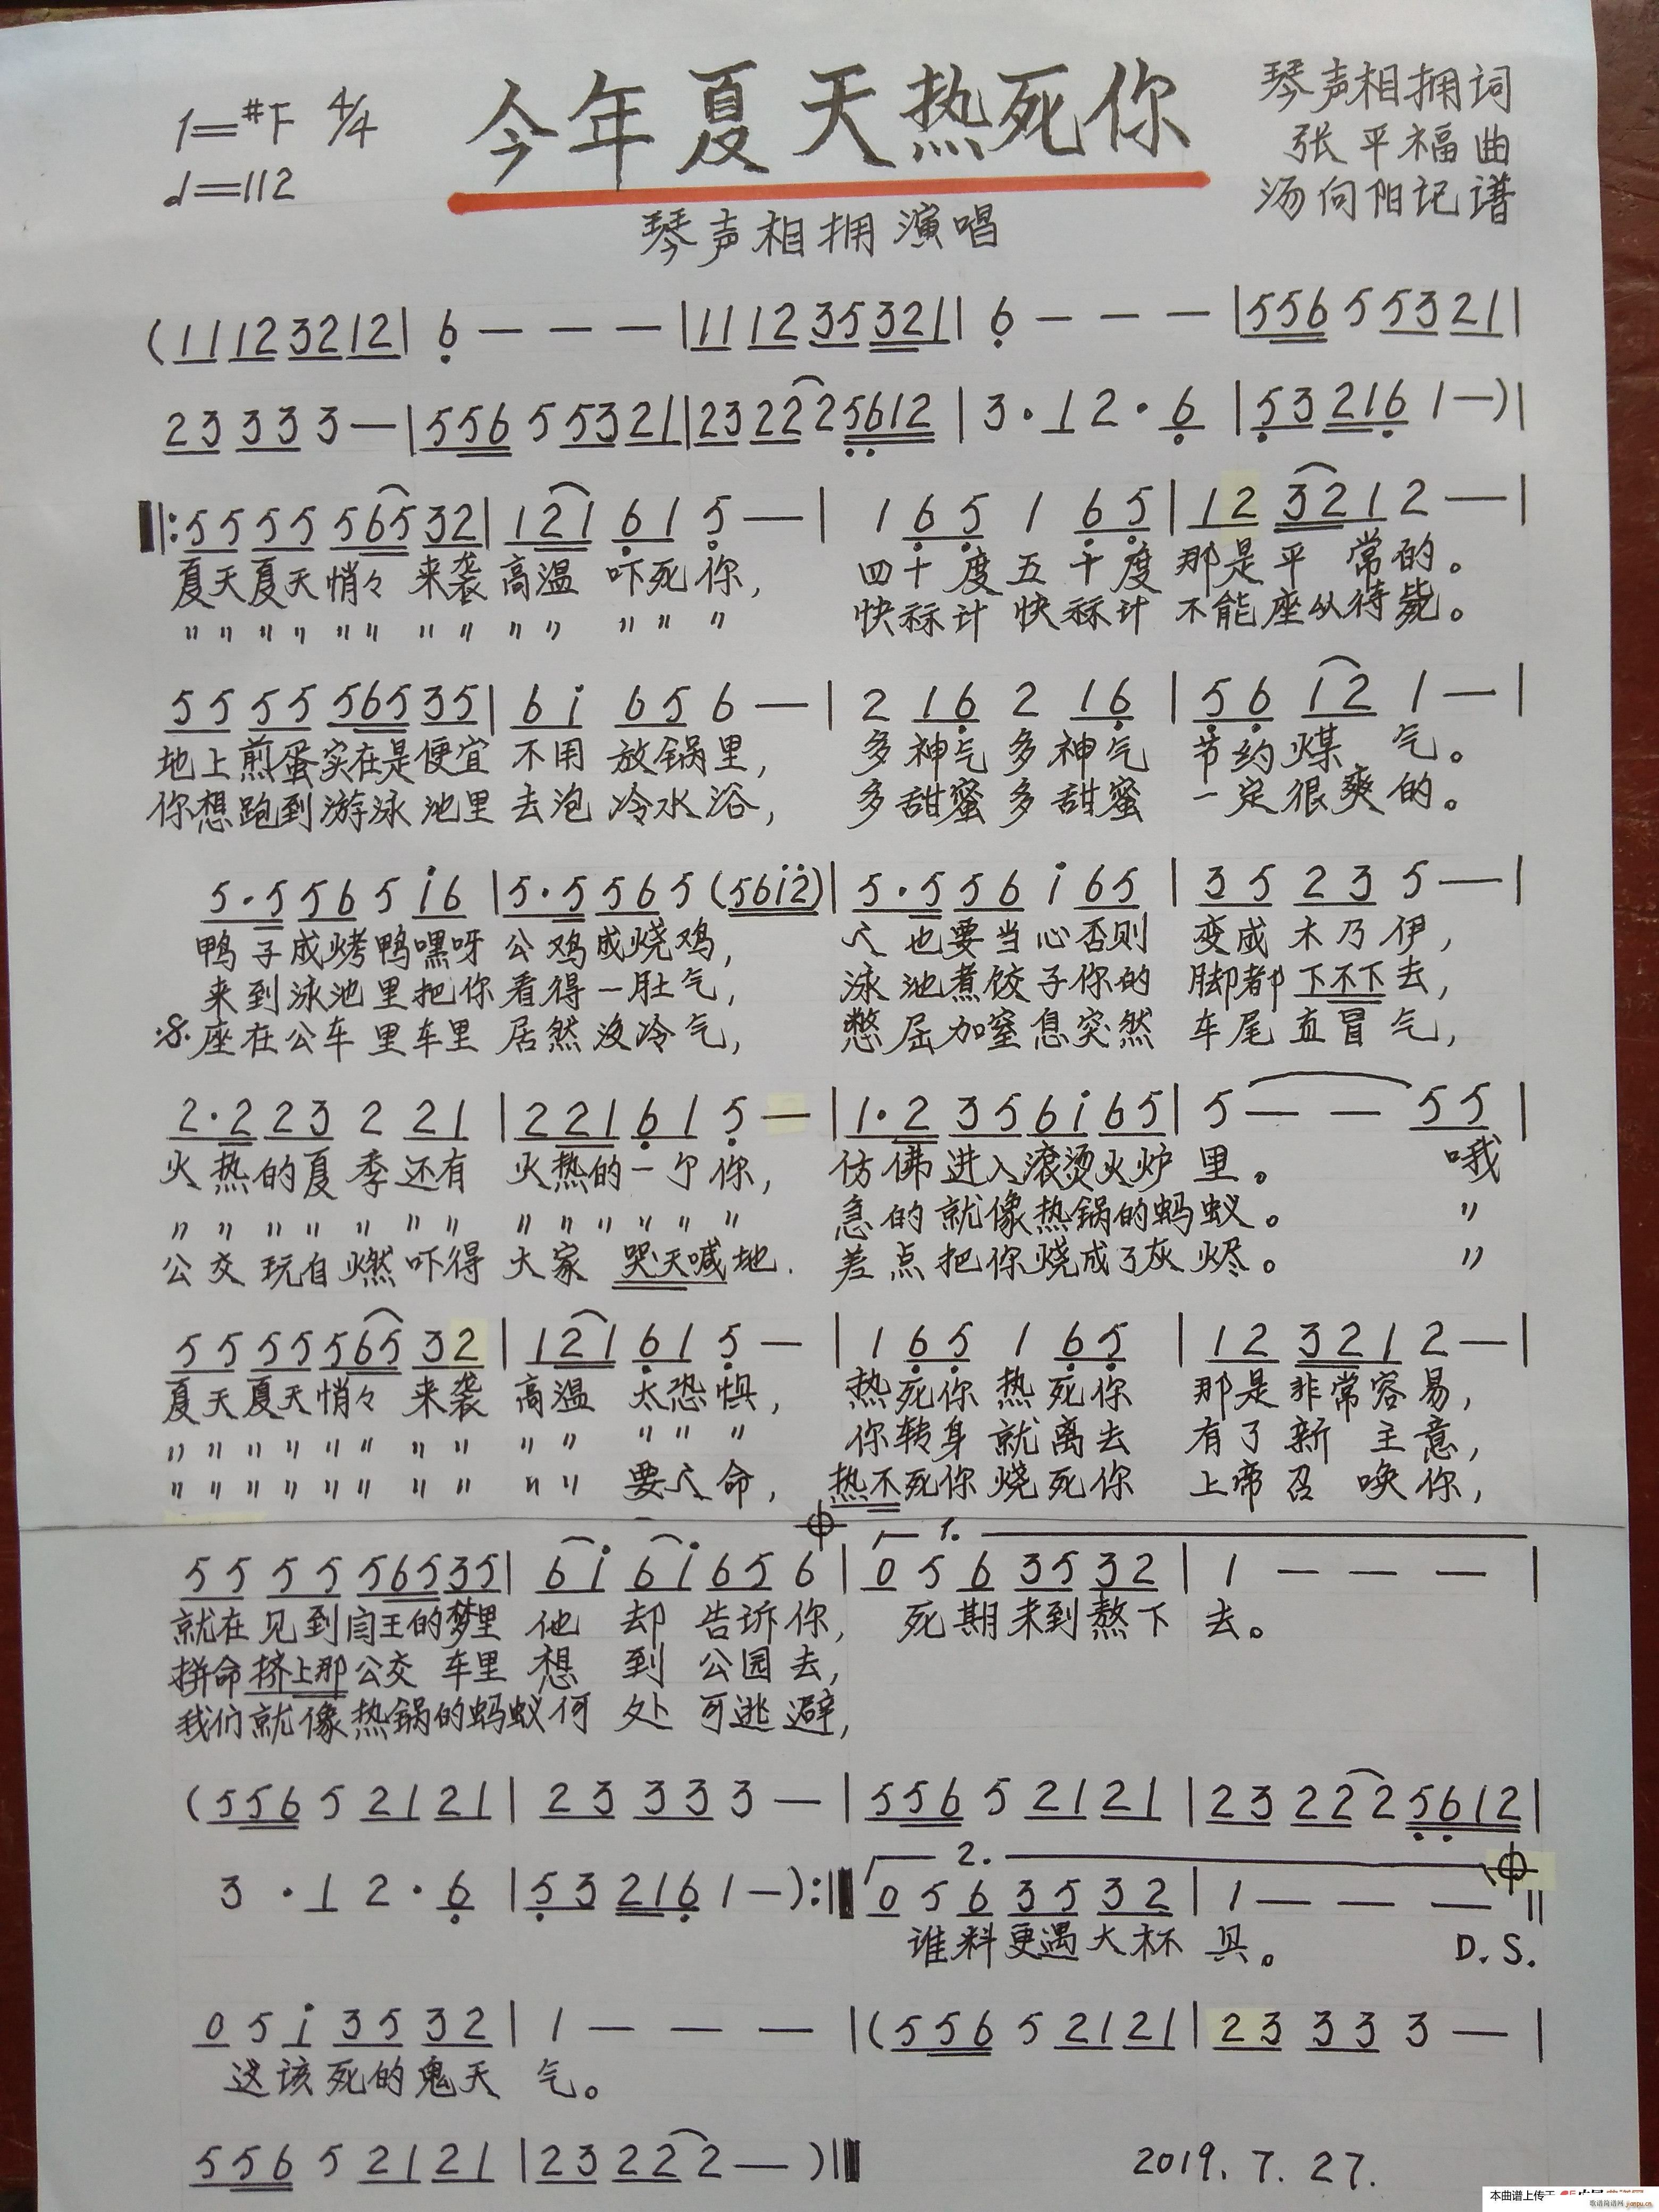 1=#F 4/4
今年夏天热死你
琴声相拥词
张平福曲
♩=112
汤向阳记谱
琴声相拥演唱
(11 12 32 12 | 6 - - - | 11 12 35 321 | 6 - - - | 556 5 53 21 |
23 33 3 - | 556 5 53 21 | 23 22 2 5612 | 3 · 1 2 · 6 | 53 216 1 - ) |
‖: 55 55 565 32 | 121 61 5 - | 1 65 1 65 | 12 321 2 - |
夏天夏天悄々 来袭高温 吓死你, 四十度五十度那是平 常的。
〃〃〃〃〃〃 〃〃〃〃 〃〃〃 快秝计 快秝计 不能座以待毙。
55 55 565 35 | 6i 65 6 - | 2 16 2 16 | 56 12 1 - |
地上煎蛋实在是便宜 不用 放锅里, 多神气多神气 节约煤 气。
你想跑到游泳池里去泡冷水浴, 多甜蜜多甜蜜 一定很爽的。
5·5 56 5 i6 | 5·5 56 5 (56i2) | 5·5 56 i 65 | 35 23 5 - |
鸭子成烤鸭嘿呀 公鸡成烧鸡, 人也要当心否则 变成木乃伊,
来到泳池里把你看得一肚气, 泳池煮饺子你的 脚都下不下去,
𝄋座在公车里车里 居然没冷气, 憋屈加窒息突然 车尾直冒气,
2·2 23 2 21 | 2 21 61 5 - | 1·2 35 6i 65 | 5 - - 55 |
火热的夏季还有 火热的一个你, 仿佛进入滚烫火炉 里。 哦
〃〃〃〃〃〃〃 〃〃〃〃〃〃 急的就像热锅的蚂蚁。 〃
公交玩自燃吓得 大家 哭天喊地. 差点把你烧成了灰烬。 〃
55 55 565 32 | 121 61 5 - | 1 65 1 65 | 12 321 2 - |
夏天夏天悄々 来袭 高温 太恐惧, 热死你热死你 那是非常容易,
〃〃〃〃〃〃 〃〃 〃〃 〃〃〃 你转身就离去 有了新 主意,
〃〃〃〃〃〃 〃〃 〃〃 要人命, 热不死你烧死你 上帝召 唤你,
𝄌 1.
55 55 565 35 | 6i 6i 65 6 | 0 5 6 35 32 | 1 - - - |
就在见到闫王的梦里 他 却 告诉你, 死期未到熬下 去。
拼命挤上那公交车里 想 到 公园去,
我们就像热锅的蚂蚁何 处 可逃避,
(556 5 21 21 | 23 33 3 - | 556 5 21 21 | 23 22 2 5612 |
2. 𝄌
3 · 1 2 · 6 | 53 216 1 - ) :‖ 0 5 6 35 32 | 1 - - - ‖
谁料更遇大杯 具。 D.S.
0 5 i 35 32 | 1 - - - | (556 5 21 21 | 23 33 3 - |
这该死的鬼天 气。
556 5 21 21 | 23 22 2 - ) ‖
2019.7.27.
本曲谱上传于
歌谱简谱网 jianpu.cn